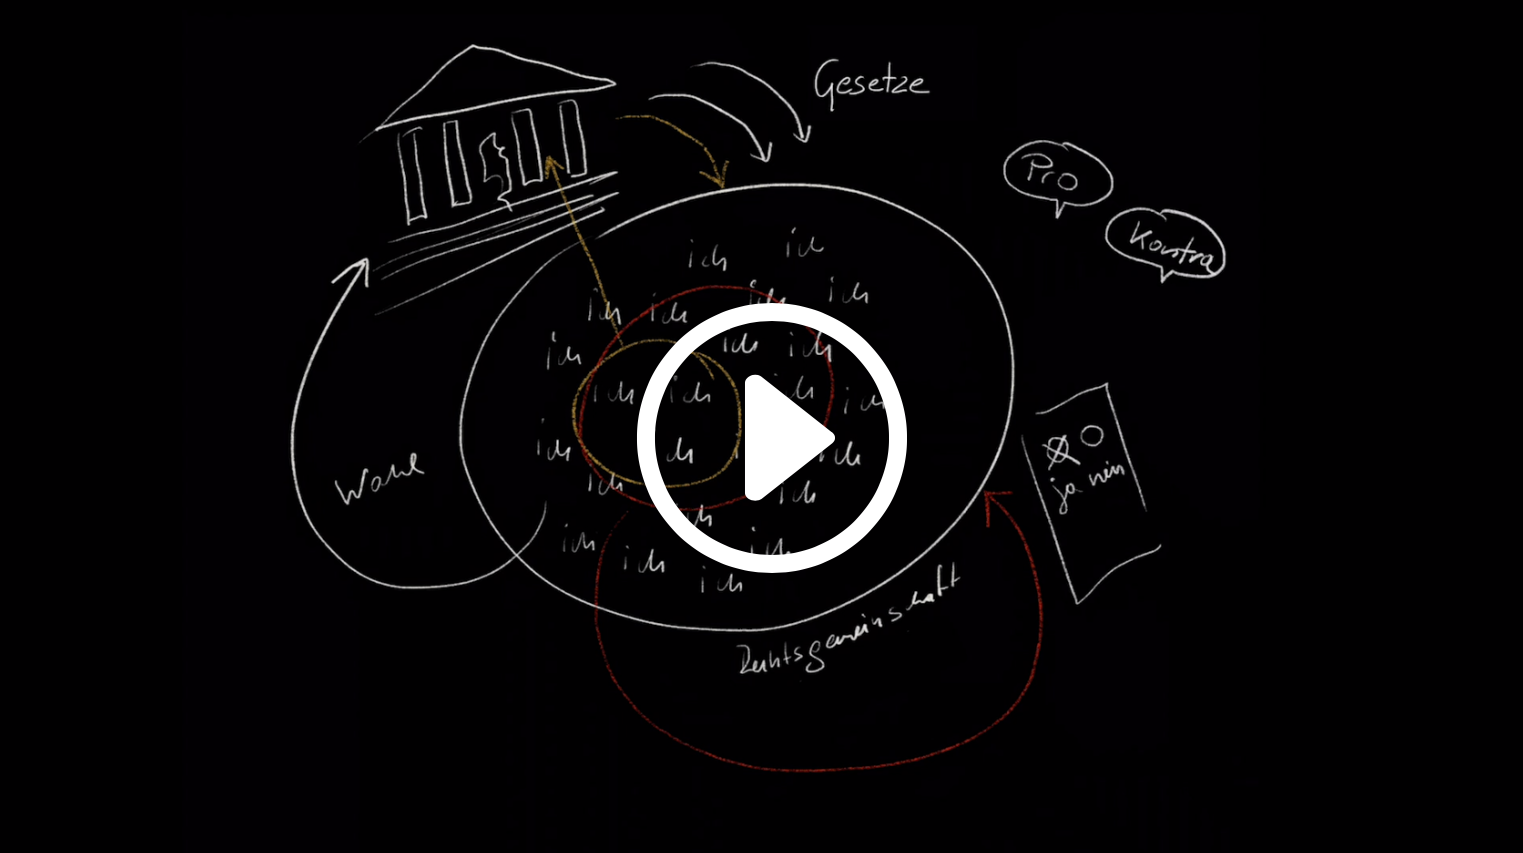 Gesetze
Pro
Kontra
ich ich
ich ich ich ich
ich ich ich
ich ich ich ich
ich ich ich
ich ich
ich
ich ich ich
ich
Wahl
ja nein
Rechtsgemeinschaft